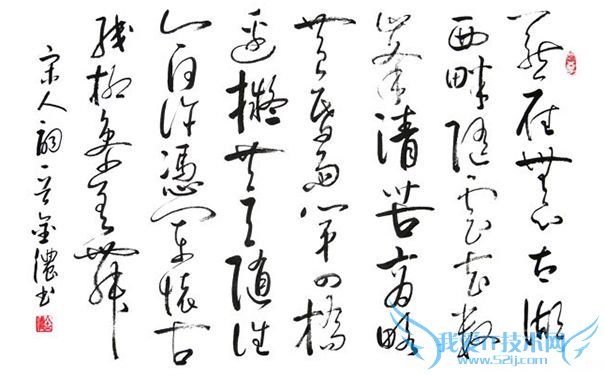 燕雁無心太湖
西畔隨雲去數
峯清苦商略
黃昏雨第四橋
邊擬共天隨住
今何許憑闌懷古
殘柳參差舞
宋人詞一首金濃書
我爱IT技术网
www.52ij.com